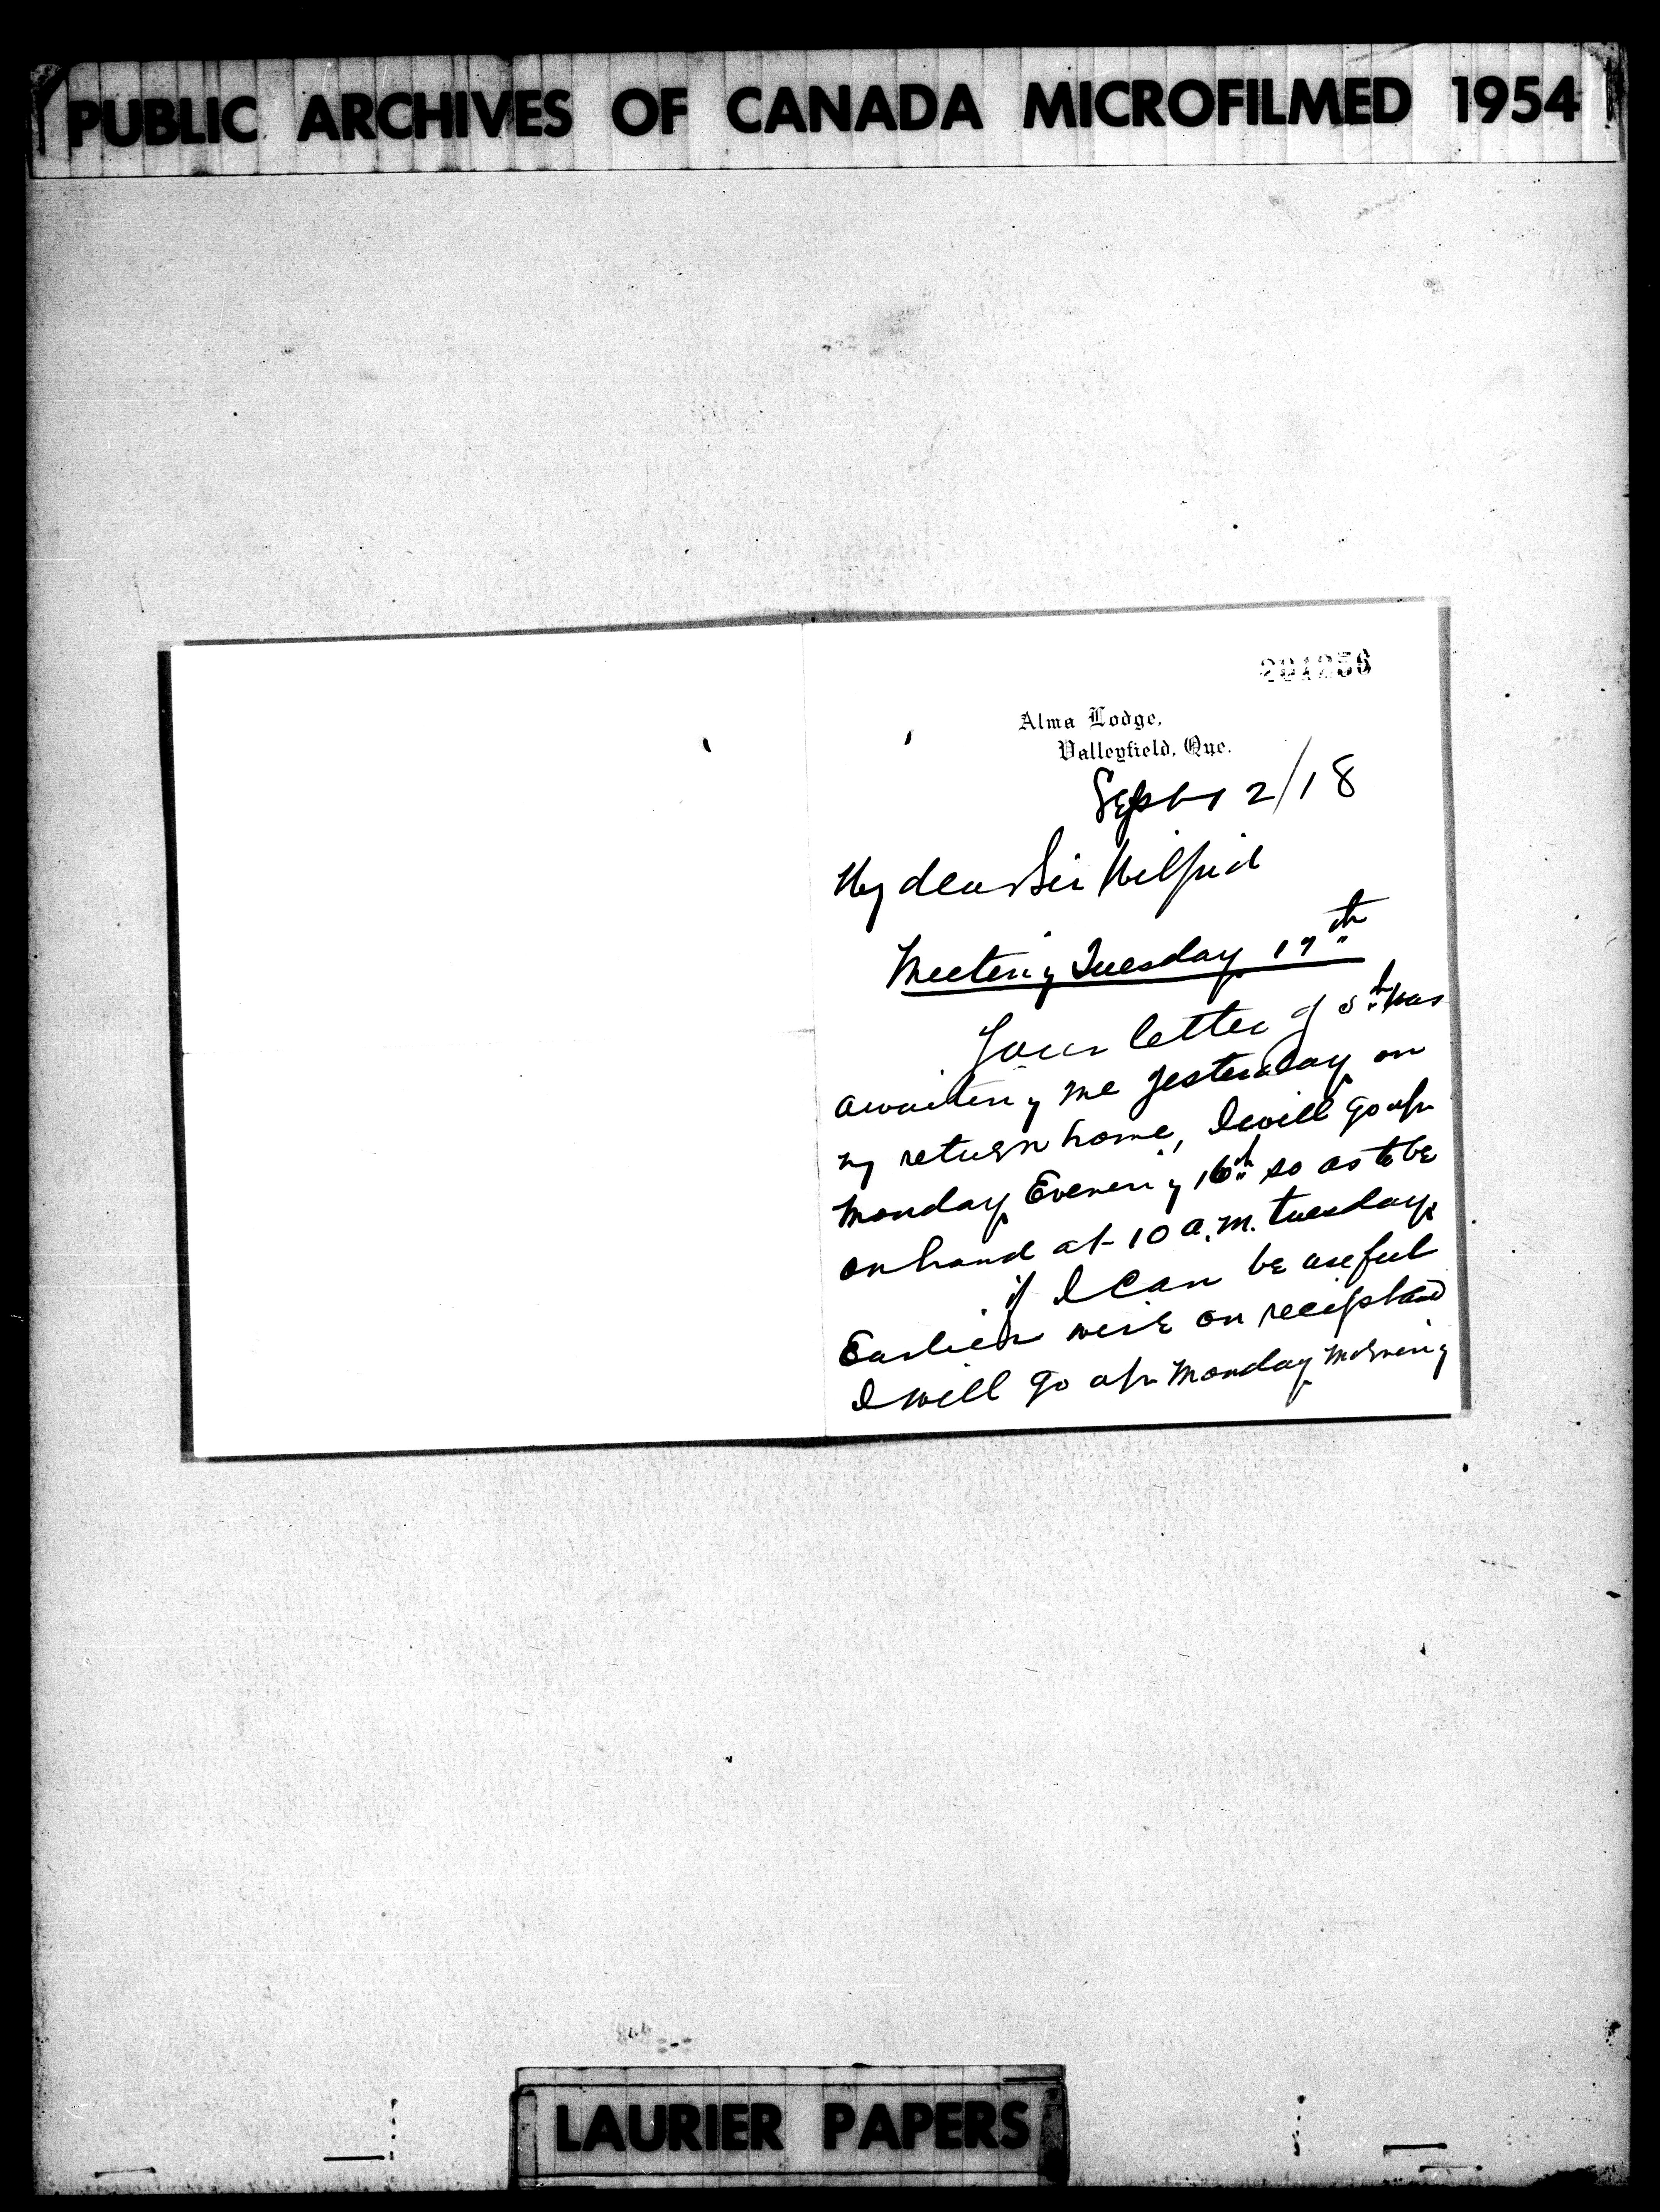 PUBLIC ARCHIVES OF CANADA MICROFILMED 1954
201256
Alma Lodge,
Valleyfield, Que.
Sept 12/18
My dear Sir Wilfrid
Meeting Tuesday 17th
Your letter of 5th was
awaiting me yesterday on
my return home, I will go up
Monday Evening 16th so as to be
on hand at 10 a.m. tuesday.
if I can be useful
Earlier wire on receipt and
I will go up Monday Morning
LAURIER PAPERS